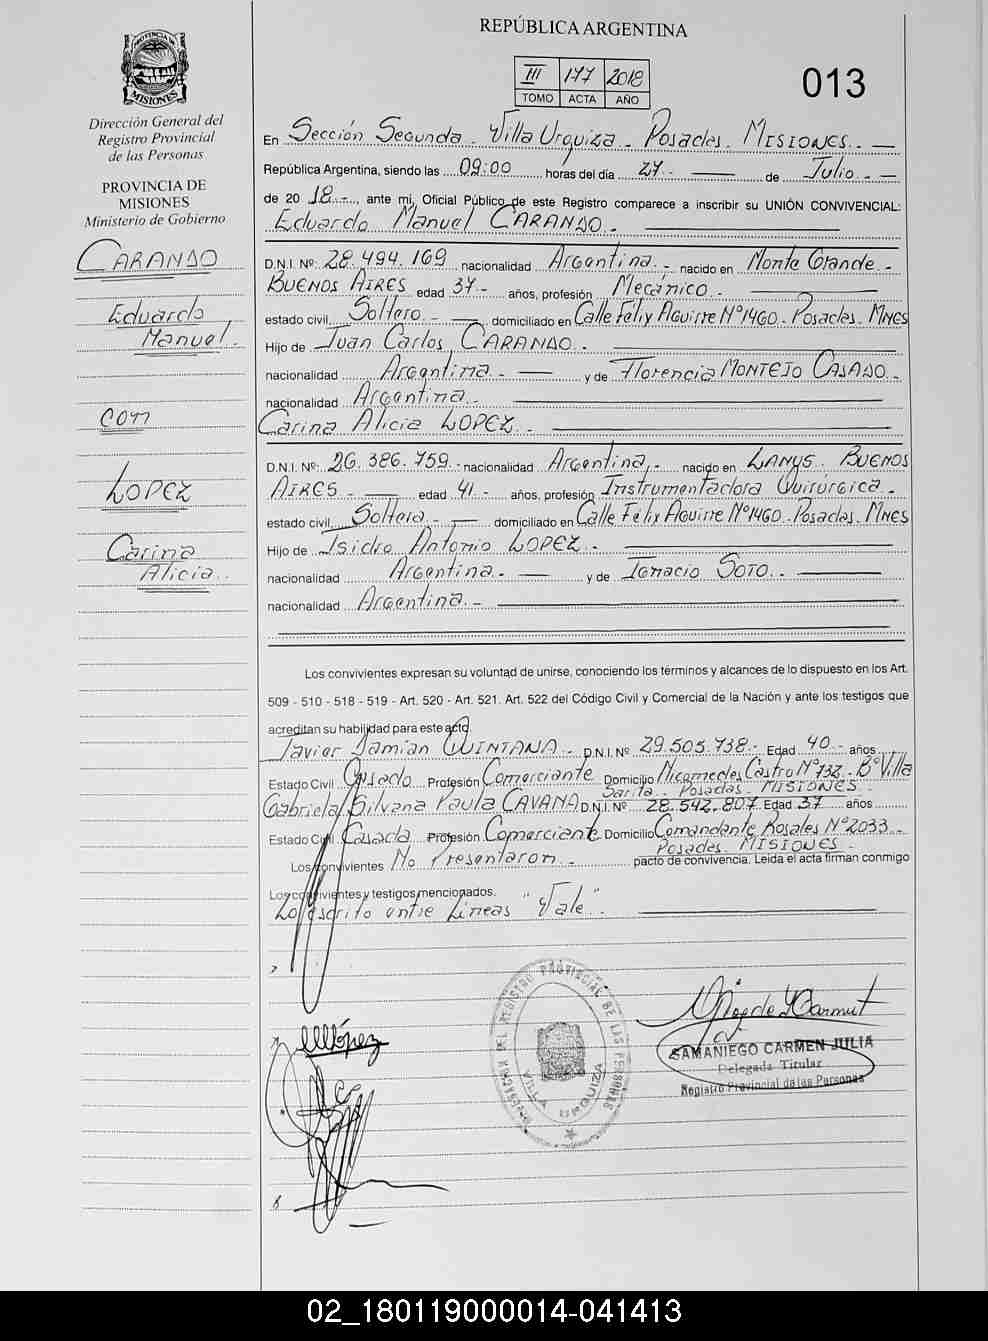 REPÚBLICA ARGENTINA
PROVINCIA DE
MISIONES
III 177 2018
TOMO ACTA AÑO
013
Dirección General del
Registro Provincial
de las Personas
PROVINCIA DE
MISIONES
Ministerio de Gobierno
CARANDO
Eduardo
Manuel.
con
LOPEZ
Carina
Alicia.
En Sección Segunda - Villa Urquiza - Posadas. MISIONES. -
República Argentina, siendo las 09:00 horas del día 27.- de Julio.-
de 20 18.-, ante mi, Oficial Público de este Registro comparece a inscribir su UNIÓN CONVIVENCIAL:
Eduardo Manuel CARANDO.-
D.N.I. Nº: 28.494.169 nacionalidad Argentina.- nacido en Monte Grande-
BUENOS AIRES edad 37- años, profesión Mecánico.-
estado civil Soltero.- domiciliado en Calle Félix Aguirre Nº1460. Posadas. Mnes
Hijo de Juan Carlos CARANDO.-
nacionalidad Argentina.- y de Florencia MONTEJO CASADO.-
nacionalidad Argentina.-
Carina Alicia LOPEZ.-
D.N.I. Nº: 26.386.759.- nacionalidad Argentina.- nacido en LANUS. BUENOS
AIRES.- edad 41.- años, profesión Instrumentadora Quirurgica.-
estado civil Soltera.- domiciliado en Calle Felix Aguirre Nº1460. Posadas. Mnes
Hijo de Isidro Antonio LOPEZ.-
nacionalidad Argentina.- y de Ignacia SOTO.-
nacionalidad Argentina.-
Los convivientes expresan su voluntad de unirse, conociendo los términos y alcances de lo dispuesto en los Art.
509 - 510 - 518 - 519 - Art. 520 - Art. 521. Art. 522 del Código Civil y Comercial de la Nación y ante los testigos que
acreditan su habilidad para este acto.
Javier Damian QUINTANA.- D.N.I. Nº 29.505.738.- Edad 40.- años
Estado Civil Casado Profesión Comerciante Domicilio Nicomedes Castro Nº732.- Bº Villa
Sarita. Posadas. MISIONES.-
Gabriela Silvana Paula CAVANA D.N.I. Nº 28.542.807 Edad 37 años
Estado Civil Casada Profesión Comerciante Domicilio Comandante Rosales Nº2033.-
Posadas. MISIONES.-
Los convivientes No Presentaron.- pacto de convivencia. Leida el acta firman conmigo
Los convivientes y testigos mencionados.
Lo escrito entre Líneas "Vale".
DELEGACION DEL REGISTRO PROVINCIAL DE LAS PERSONAS
VILLA URQUIZA
SAMANIEGO CARMEN JULIA
Delegada Titular
Registro Provincial de las Personas
02_180119000014-041413